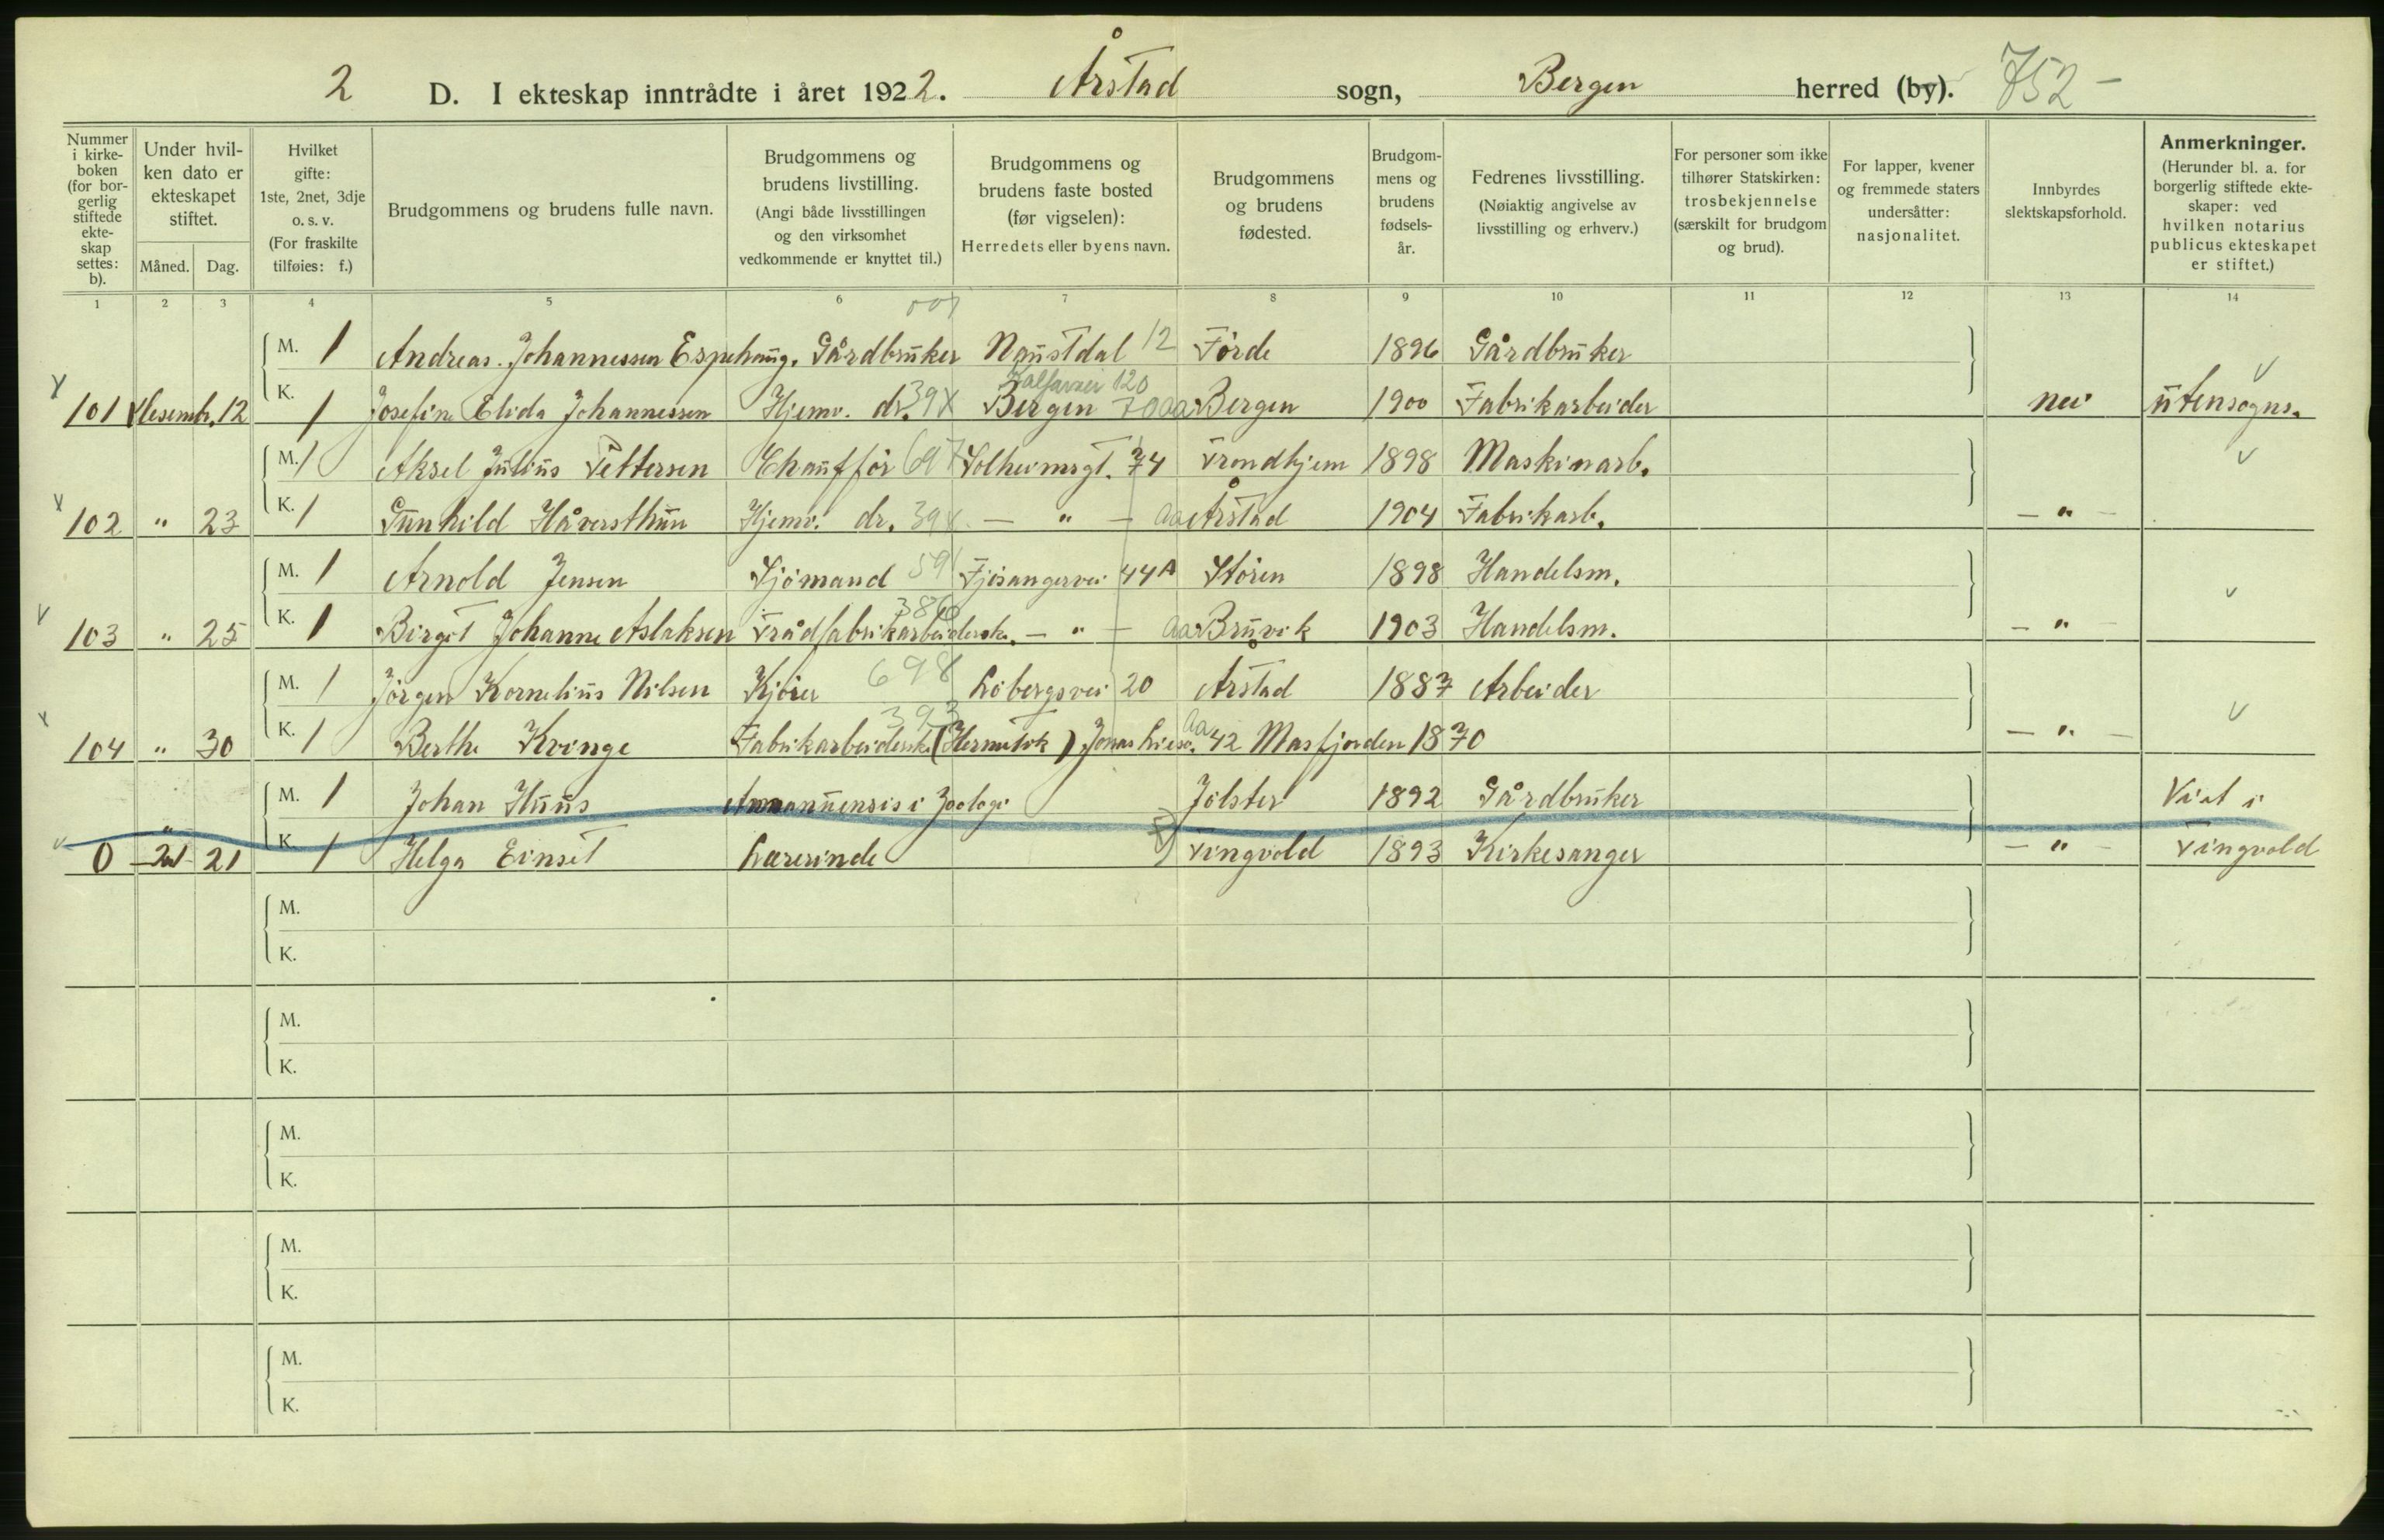 2 D. I ekteskap inntrådte i året 1922. Årstad sogn, Bergen herred (by). 752 -
Nummer i kirkeboken (for borgerlig stiftede ekteskap settes: b).
Under hvilken dato er ekteskapet stiftet.
Måned. Dag.
Hvilket gifte: 1ste, 2net, 3dje o. s. v. (For fraskilte tilføies: f.)
Brudgommens og brudens fulle navn.
Brudgommens og brudens livstilling. (Angi både livsstillingen og den virksomhet vedkommende er knyttet til.)
Brudgommens og brudens faste bosted (før vigselen): Herredets eller byens navn.
Brudgommens og brudens fødested.
Brudgommens og brudens fødselsår.
Fedrenes livsstilling. (Nøiaktig angivelse av livsstilling og erhverv.)
For personer som ikke tilhører Statskirken: trosbekjennelse (særskilt for brudgom og brud).
For lapper, kvener og fremmede staters undersåtter: nasjonalitet.
Innbyrdes slektskapsforhold.
Anmerkninger. (Herunder bl. a. for borgerlig stiftede ekteskaper: ved hvilken notarius publicus ekteskapet er stiftet.)
1 2 3 4 5 6 7 8 9 10 11 12 13 14
M. 1 Andreas Johannessen Espehaug. Gårdbruker Naustdal 12 Førde 1896 Gårdbruker
Kalfarvei 120
101 Desembr. 12 K. 1 Josefine Elida Johannessen Hjemv. dr. 39x Bergen 70 aa Bergen 1900 Fabrikarbeider nei utensogns.
M. 1 Aksel Julius Pettersen Chauffør 697 Solheimsgt. 74 Trondhjem 1898 Maskinarb.
102 " 23 K. 1 Gunhild Håversthun Hjemv. dr. 39x - " - aa Årstad 1904 Fabrikarb. - " -
M. 1 Arnold Jensen Sjömand 591 Fjösangervei 44A Stören 1898 Handelsm.
386
103 " 25 K. 1 Birgit Johanne Aslaksen Trådfabrikarbeiderske. - " - aa Bruvik 1903 Handelsm. - " -
M. 1 Jörgen Kornelius Nilsen Kjörer 698 Löbergsvei 20 Årstad 1887 Arbeider
393
104 " 30 K. 1 Berthe Kvinge Fabrikarbeiderske (Hermetik) Jonas Liesv. 42 aa Masfjorden 1870 - " -
M. 1 Johan Huus Amanuensis i Zoologi Jölster 1892 Gårdbruker Viet i
0 Jul 21 K. 1 Helga Einset Lærerinde Tingvold 1893 Kirkesanger - " - Tingvold
M.
K.
M.
K.
M.
K.
M.
K.
M.
K.